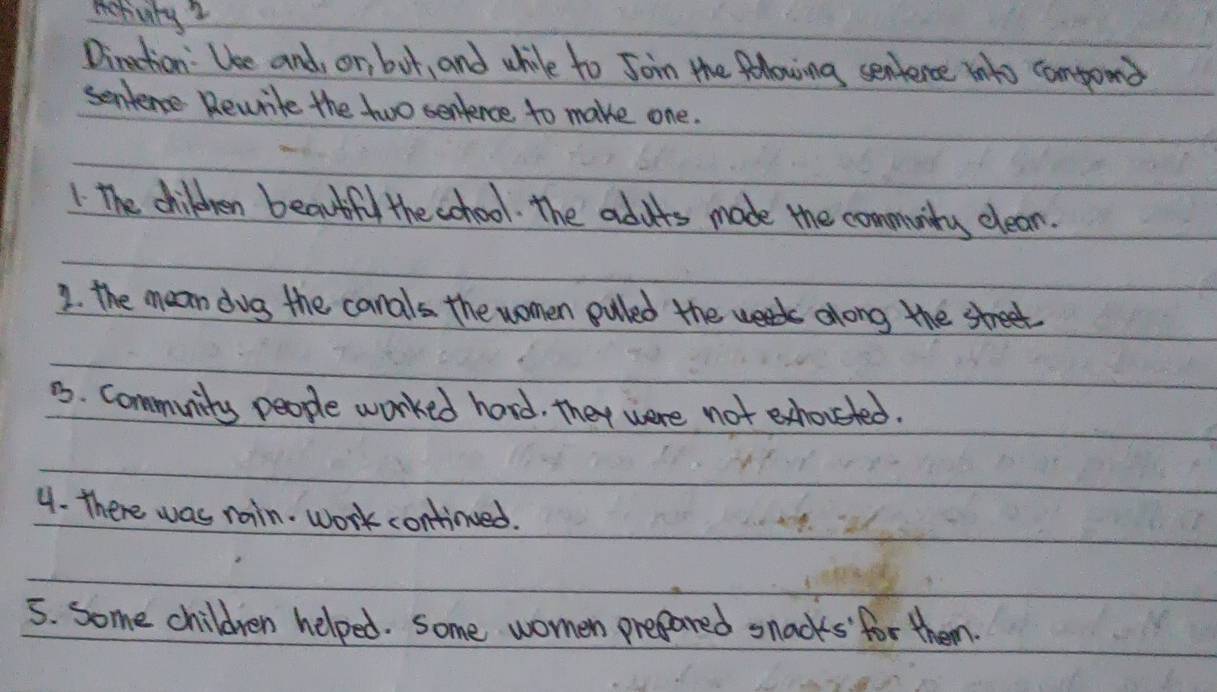 Activity 2
Direction: Use and, or, but, and while to Join the following sentence into compound
sentence Rewrite the two sentence to make one.
1. The children beautiful the school. The adults made the community clean.
2. the mean dug the canals the women pulled the weeds along the street
3. Community people worked hard. They were not exhousted.
4. there was rain. work continued.
5. Some children helped. some women prepared snacks for them.